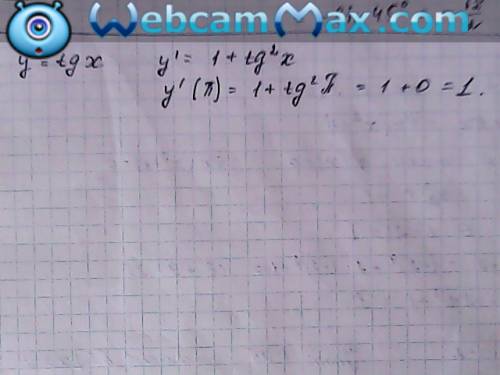 WebcamMax.com
y = tg x y' = 1 + tg²x
y'(π) = 1 + tg²π = 1 + 0 = 1.